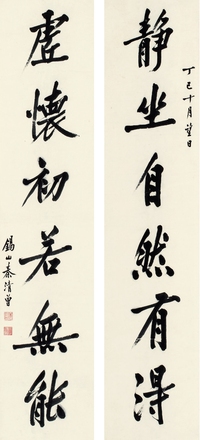 丁巳十月望日
静坐自然有得
虚懐初若無能
錫山秦清曾